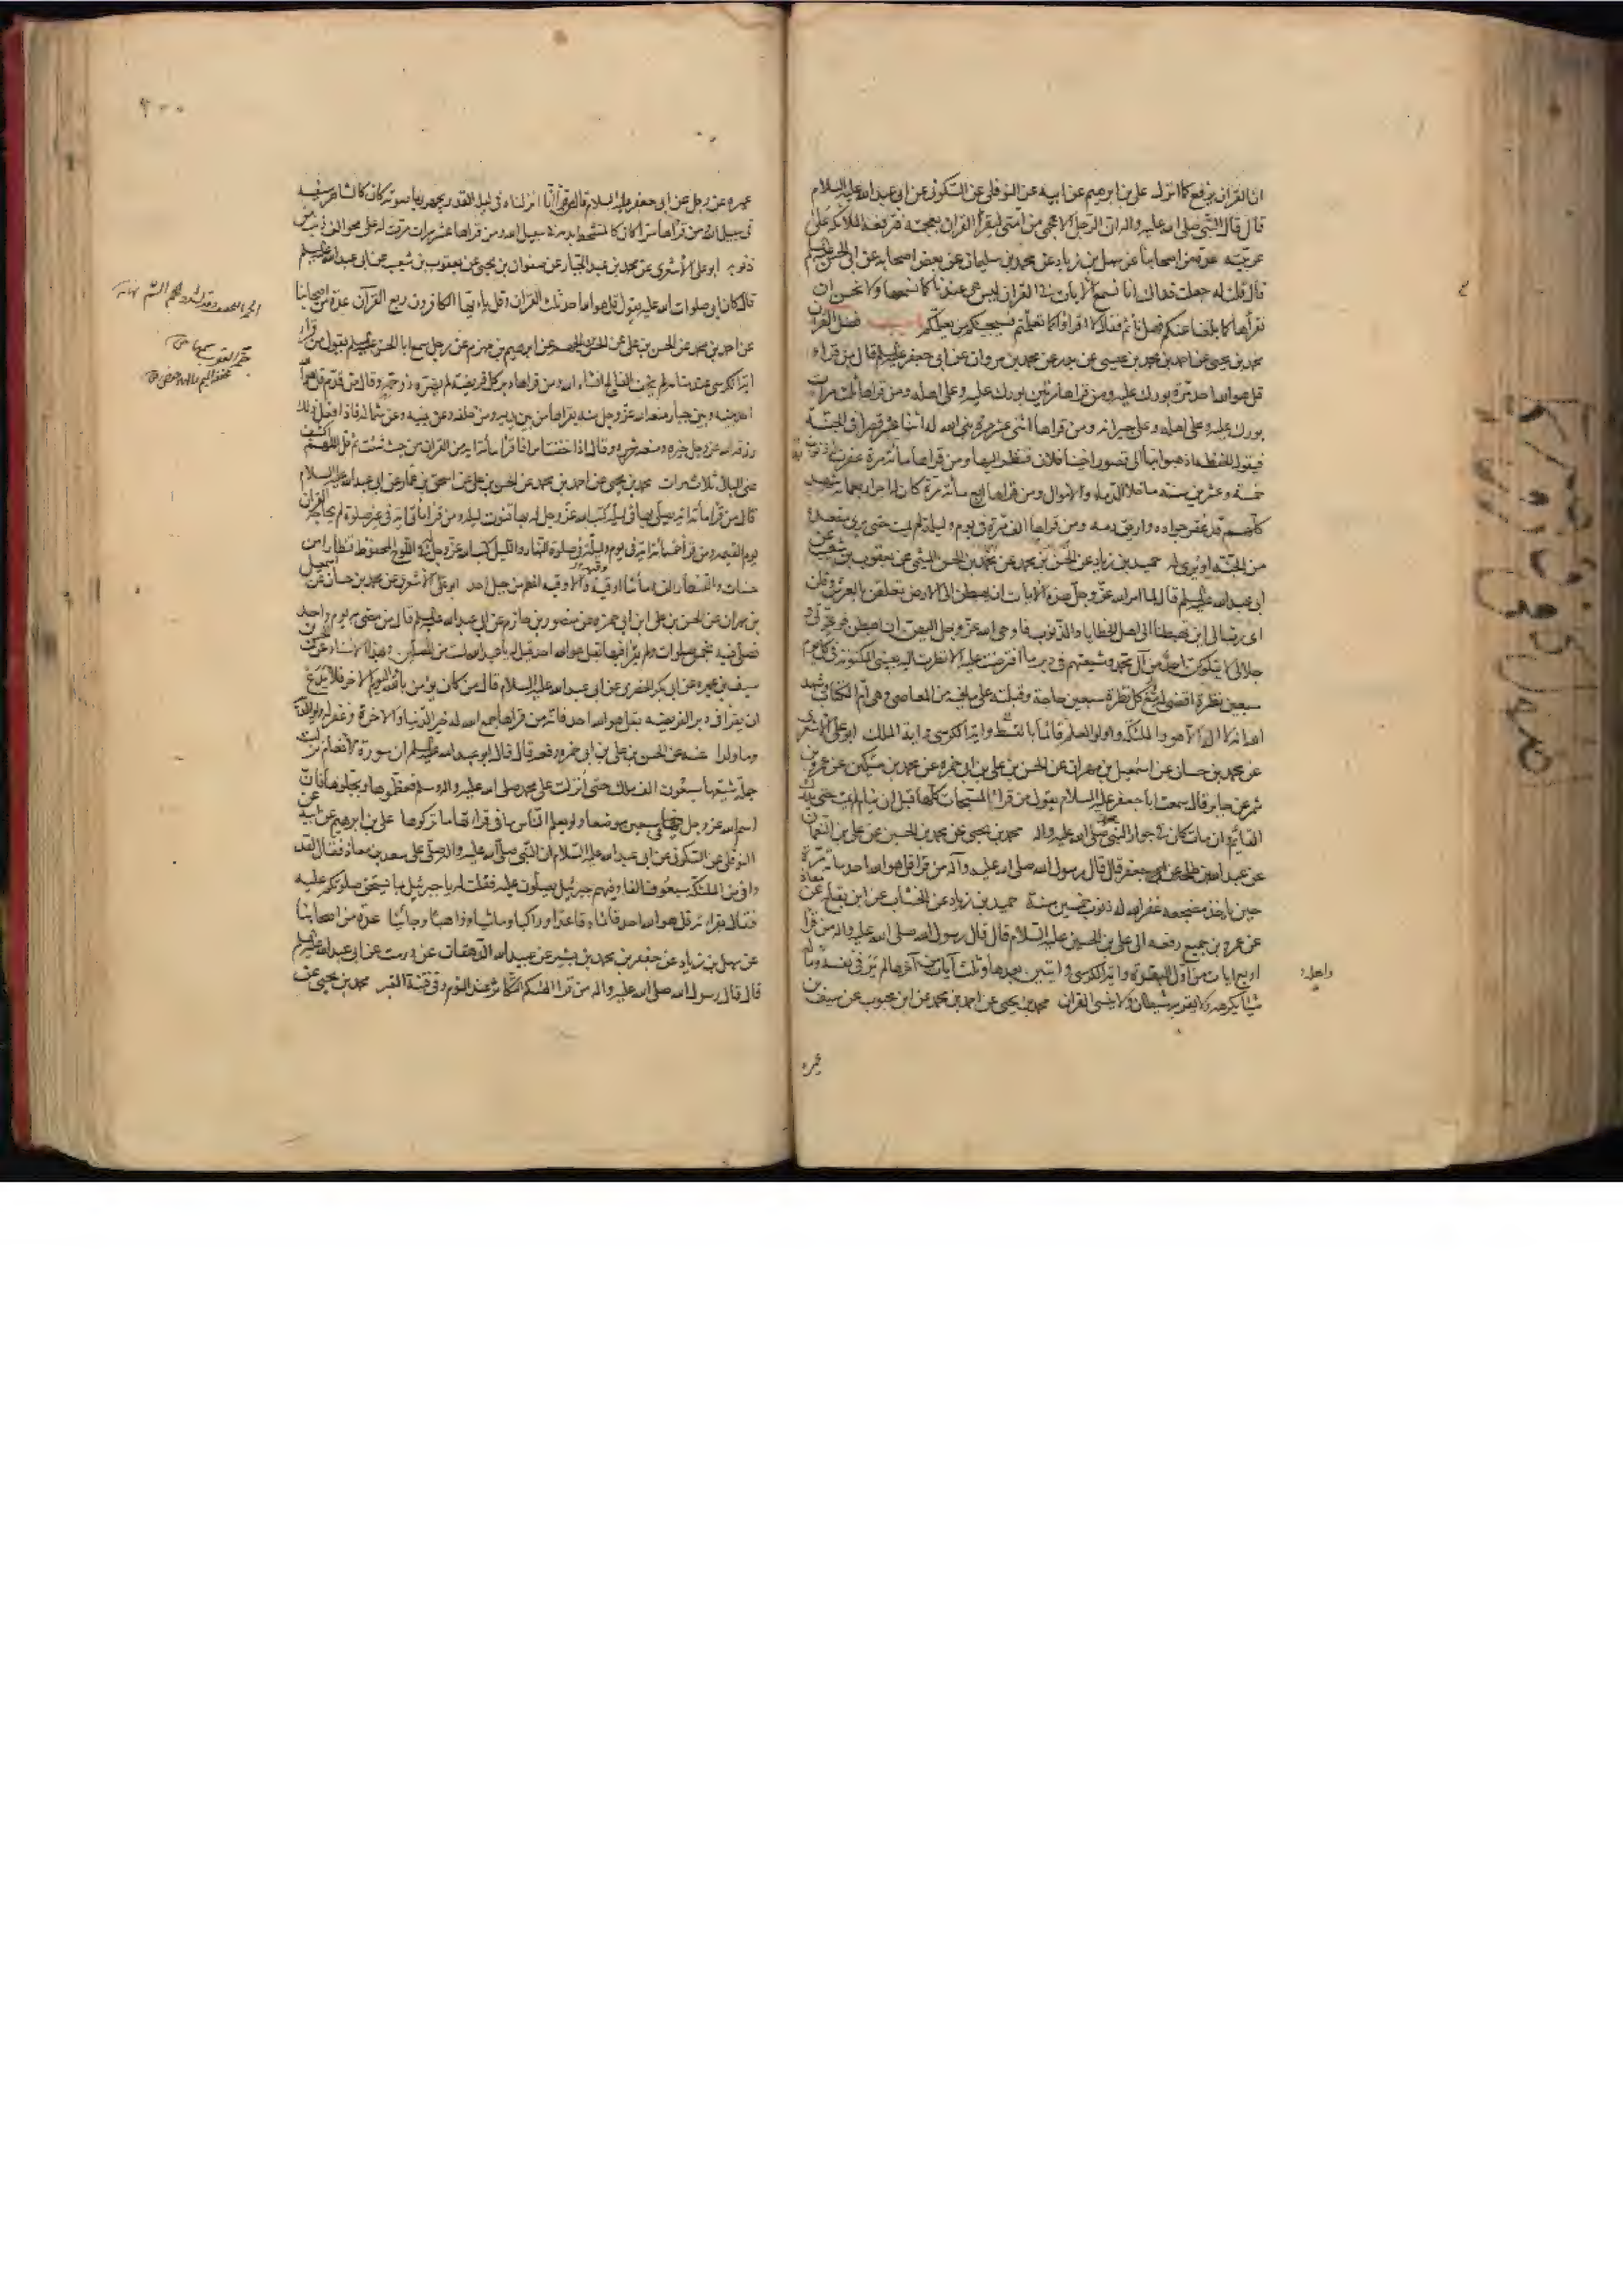 ان القران يرفع كما انزل علي بن ابرهيم عن ابيه عن النوفلي عن السكوني عن ابي عبد الله عليه السلام
قال قال النبي صلى الله عليه واله ان الرجل الاعجمي من امتي ليقرأ القران بعجميته فترفعه الملائكة على
عربيته عدة من اصحابنا عن سهل بن زياد عن محمد بن سليمان عن بعض اصحابه عن ابي الحسن عليه السلم
قال قلت له جعلت فداك انا نسمع الايات في القران ليس هي عندنا كما نسمعها ولا نحسن ان
نقرأها كما بلغنا عنكم فهل نأثم فقال لا اقرؤا كما تعلمتم فسيجيئكم من يعلمكم باب فضل القران
محمد بن يحيى عن احمد بن محمد بن عيسى عن بدر عن محمد بن مروان عن ابي جعفر عليه السلم قال من قراء
قل هو الله احد مرة بورك عليه ومن قراها مرتين بورك عليه وعلى اهله ومن قراها ثلث مرات
بورك عليه وعلى اهله وعلى جيرانه ومن قراها اثنى عشر مرة بنى الله له اثنا عشر قصرا في الجنة
فيقول الحفظة اذهبوا بنا الى قصور اخينا فلان فننظر اليها ومن قراها مائة مرة غفرت له ذنوب
خمسة وعشرين سنة ما خلا الدماء والاموال ومن قراها اربع مائة مرة كان له اجر اربعمائة شهيد
كلهم قد عقر جواده واريق دمه ومن قراها الف مرة في يوم وليلة لم يمت حتى يرى مقعده
من الجنة او يرى له حميد بن زياد عن الحسن بن محمد عن محمد بن الحسن الميثمي عن يعقوب بن شعيب عن
ابي عبد الله عليه السلم قال لما امر الله عز وجل هذه الايات ان يهبطن الى الارض تعلقن بالعرش وقلن
اى رب الى اين تهبطنا الى اهل الخطايا والذنوب فاوحى الله عز وجل اليهن ان اهبطن فوعزتي و
جلالي لا يتلوكن احد من آل محمد وشيعتهم في دبر ما افترضت عليه الا نظرت اليه بعيني المكنونة في كل يوم
سبعين نظرة اقضي له في كل نظرة سبعين حاجة وقبلته على ما فيه من المعاصي وهي ام الكتاب وشهد
الله انه لا اله الا هو والملئكة واولو العلم قائما بالقسط واية الكرسي واية الملك ابو علي الاشعرى
عن محمد بن حسان عن اسمعيل بن مهران عن الحسن بن علي بن ابي حمزة عن محمد بن سكين عن عمرو بن
شمر عن جابر قال سمعت ابا جعفر عليه السلام يقول من قرا المسبحات كلها قبل ان ينام لم يمت حتى يدرك
القايم وان مات كان في جوار النبي صلى الله عليه واله محمد بن يحيى عن محمد بن الحسين عن علي بن النعمان
عن عبد الله بن طلحة عن جعفر قال قال رسول الله صلى الله عليه وآله من قرا قل هو الله احد مائة مرة
حين ياخذ مضجعه غفر الله له ذنوب خمسين سنة حميد بن زياد عن الخشاب عن ابن بقاح عن معاذ
عن عمرو بن جميع رفعه الى علي بن الحسين عليه السلام قال قال رسول الله صلى الله عليه واله من قرا
اربع ايات من اول البقرة واية الكرسي وايتين بعدها وثلث آيات من آخرها لم ير في نفسه وماله
شيئا يكرهه ولا يقربه شيطان ولا ينسى القران محمد بن يحيى عن احمد بن محمد عن ابن محبوب عن سيف بن
واهله
عميره
عميره عن رجل عن ابي جعفر عليه السلام قال من قرأ انا انزلناه في ليلة القدر يجهر بها صوته كان كالشاهر سيفه
في سبيل الله ومن قراها سرا كان كالمتشحط بدمه في سبيل الله ومن قراها عشر مرات مرت له على محو الف ذنب من
ذنوبه ابو علي الاشعرى عن محمد بن عبد الجبار عن صفوان بن يحيى عن يعقوب بن شعيب عن ابي عبد الله عليه السلم
قال كان ابي صلوات الله عليه يقول قل هو الله احد ثلث القران وقل يا ايها الكافرون ربع القرآن عدة من اصحابنا
عن احمد بن محمد عن الحسن بن علي عن الحسن بن الجهم عن ابرهيم بن مهزم عن رجل سمع ابا الحسن عليه السلم يقول من قرا
اية الكرسي عند منامه لم يخف الفالج انشاء الله ومن قراها دبر كل فريضة لم يضره ذو حمة وقال من قدم قل هو الله
احد بينه وبين جبار منعه الله عز وجل منه يقراها من بين يديه ومن خلفه وعن يمينه وعن شماله فاذا فعل ذلك
رزقه الله عز وجل خيره ومنعه شره وقال اذا خفت امرا فاقرا مائة اية من القران من حيث شئت ثم قل اللهم اكشف
عني البلاء ثلاث مرات محمد بن يحيى عن احمد بن محمد عن الحسن بن علي عن اسحق بن عمار عن ابي عبد الله عليه السلام
قال من قرا مائة اية يصلي بها في ليلة كتب الله عز وجل له بها قنوت ليلة ومن قرا مائتي اية في غير صلوة لم يحاجه القران
يوم القيمة ومن قرا خمسمائة اية في يوم وليلة في صلوة النهار والليل كتب الله عز وجل له في اللوح المحفوظ قنطارا من
حسنات والقنطار الف ومأتا اوقية والاوقية اعظم من جبل احد ابو علي الاشعري عن محمد بن حسان عن اسمعيل
بن مهران عن الحسن بن علي ابن ابي حمزة عن منصور بن حازم عن ابي عبد الله عليه السلم قال من مضى به يوم واحد
فصلى فيه بخمس صلوات ولم يقرا فيها بقل هو الله احد قيل له يا عبد الله لست من المصلين وبهذا الاسناد عن الحسن بن
سيف بن عميره عن ابي بكر الحضرمي عن ابي عبد الله عليه السلام قال من كان يؤمن بالله واليوم الاخر فلا يدع
ان يقرا في دبر الفريضة بقل هو الله احد فانه من قراها جمع الله له خير الدنيا والاخرة وغفر له ولوالديه
وما ولدا عنه عن الحسن بن علي بن ابي حمزه رفعه قال قال ابو عبد الله عليه السلم ان سورة الانعام نزلت
جملة شيعها سبعون الف ملك حتى أنزلت على محمد صلى الله عليه واله وسلم فعظموها وبجلوها فان
اسم الله عز وجل فيها في سبعين موضعا ولو يعلم الناس ما في قراءتها ما تركوها علي بن ابرهيم عن ابيه عن
النوفلي عن السكوني عن ابي عبد الله عليه السلام ان النبي صلى الله عليه واله صلى على سعد بن معاذ فقال لقد
وافى من الملئكة سبعون الفا وفيهم جبرئيل يصلون عليه فقلت له يا جبرئيل بما يستحق صلوتكم عليه
فقال بقراءته قل هو الله احد قائما وقاعدا وراكبا وماشيا وذاهبا وجائيا عدة من اصحابنا
عن سهل بن زياد عن جعفر بن محمد بن بشير عن عبيد الله الدهقان عن درست عن ابي عبد الله عليه السلم
قال قال رسول الله صلى الله عليه واله من قرا الهيكم التكاثر عند النوم وقي فتنة القبر محمد بن يحيى عن